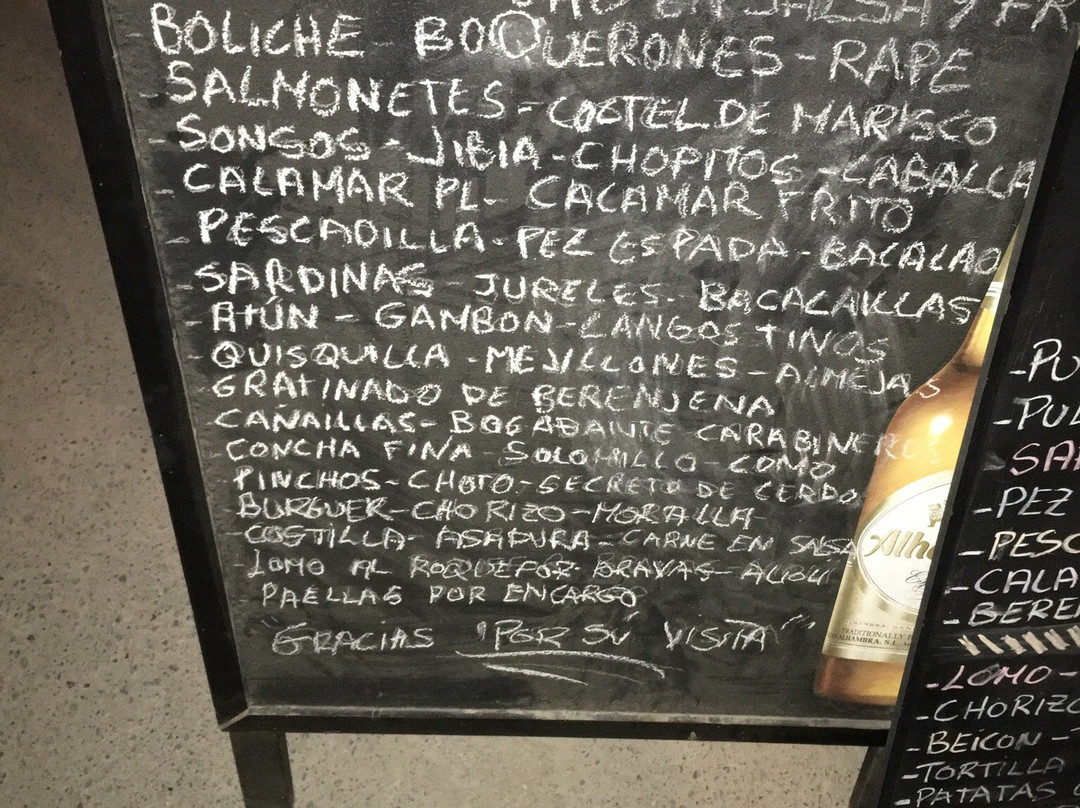 EN SALSA Y FR
BOLICHE BOQUERONES - RAPE
- SALMONETES - COCTEL DE MARISCO
- SONSOS - JIBIA - CHOPITOS - CABALLA
- CALAMAR PL - CACAMAR FRITO
- PESCADILLA - PEZ ESPADA - BACALAO
- SARDINAS - JURELES - BACACAILLAS
- ATÚN - GAMBON - LANGOSTINOS
- QUISQUILLA - MEJILLONES - ALMEJAS
- GRATINADO DE BERENJENA
- CAÑAILLAS - BOGABANTE CARABINEROS
- CONCHA FINA - SOLOMILLO - LOMO
PINCHOS - CHOTO - SECRETO DE CERDO
BURGUER - CHORIZO - MORALLA
- COSTILLA - ASADURA - CARNE EN SALSA
- LOMO AL ROQUEFOR - BRAVAS - ALIOLI
PAELLAS POR ENCARGO
"GRACIAS POR SU VISITA"
Alh
TRADITIONALLY
ALHAMBRA, S.L.
- PU
- PUL
SA
- PEZ
- PESC
- CALA
- BERE
- LOMO -
- CHORIZO
- BEICON -
- TORTILLA
- PATATAS